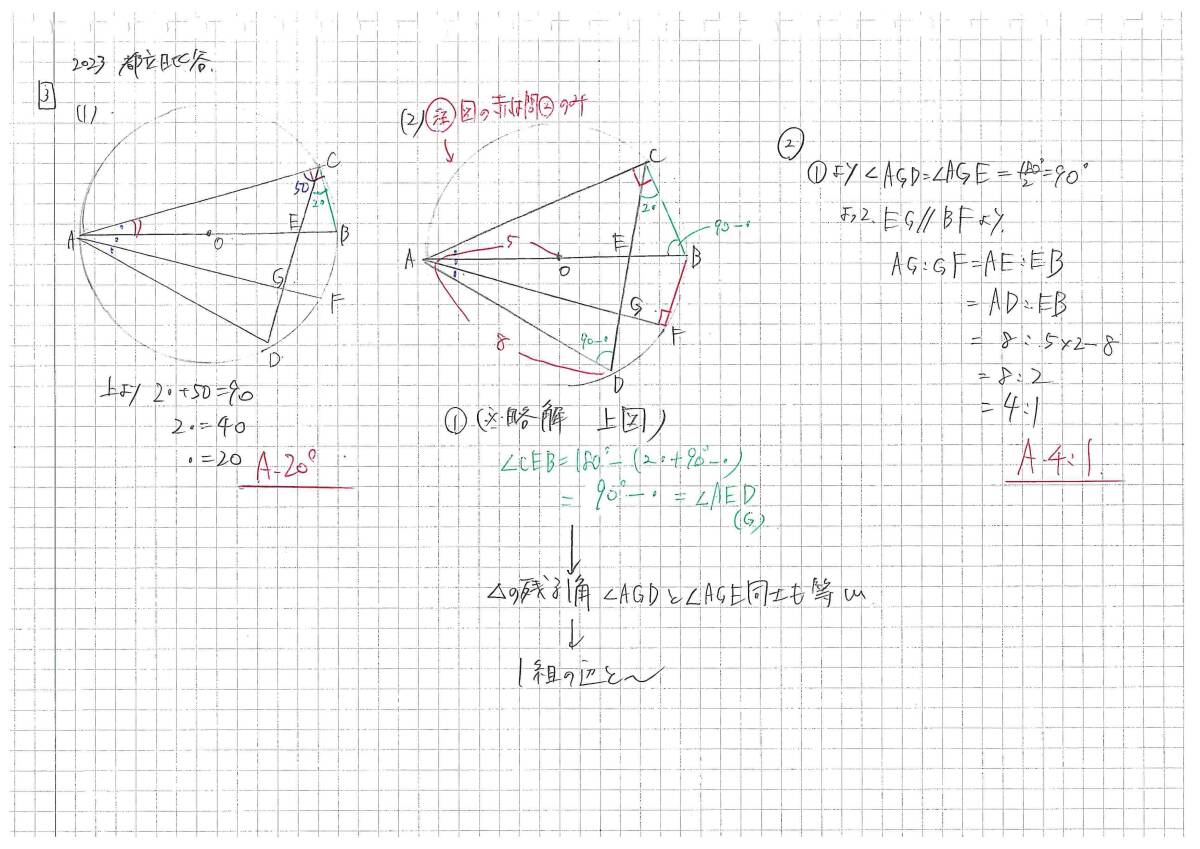 2023 都立日比谷.
3
(1)
C
50
2・
E
A
O
B
G
F
D
上より 2・+50=90
2・=40
・=20
A-20°
(2) 注 図の赤は問②のみ
C
2・
90-・
E
5
A
O
B
G
F
8
90-・
D
① (※略解 上図)
∠CEB=180°-(2・+90-・)
= 90°-・ = ∠AED
(G)
△の残る1角 ∠AGDと∠AGE同士も等しい
1組の辺と〜
②
①より ∠AGD=∠AGE=180°/2=90°
よって、EG//BFより、
AG:GF=AE:EB
= AD:EB
= 8:5×2-8
= 8:2
= 4:1
A-4:1.